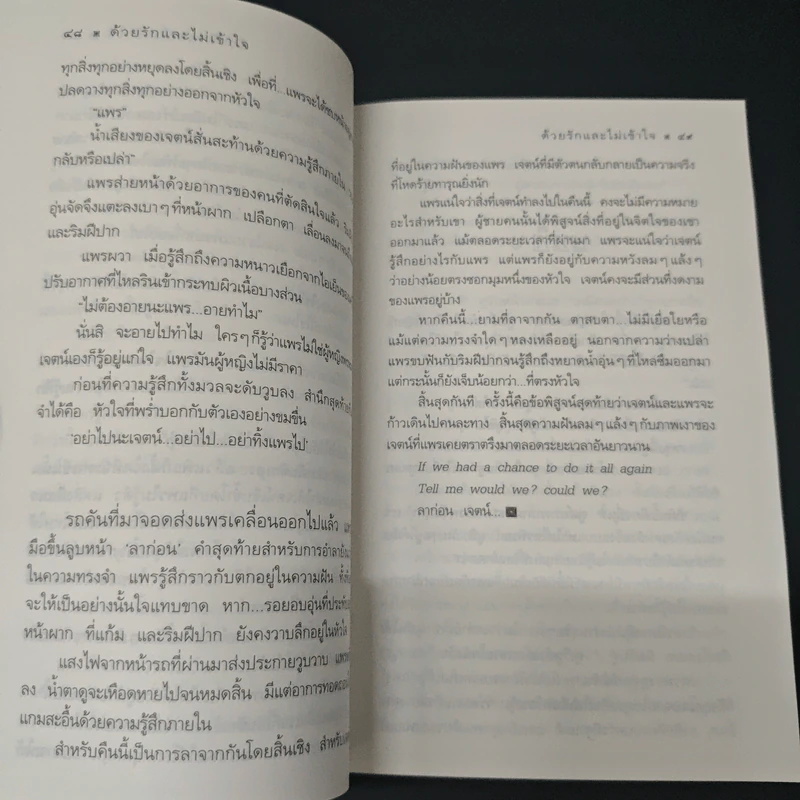 ๔๘ * ด้วยรักและไม่เข้าใจ
ทุกสิ่งทุกอย่างหยุดลงโดยสิ้นเชิง เพื่อที่...แพรจะได้
ปลดวางทุกสิ่งทุกอย่างออกจากหัวใจ
"แพร"
น้ำเสียงของเจตน์สั่นสะท้านด้วยความรู้สึกภายใน
กลับหรือเปล่า"
แพรส่ายหน้าด้วยอาการของคนที่ตัดสินใจแล้ว
อุ่นจัดจึงแตะลงเบาๆ ที่หน้าผาก เปลือกตา เลื่อนลงมา
และริมฝีปาก
แพรผวา เมื่อรู้สึกถึงความหนาวเยือกจากไอเย็นของ
ปรับอากาศที่ไหลรินเข้ากระทบผิวเนื้อบางส่วน
"ไม่ต้องอายนะแพร...อายทำไม"
นั่นสิ จะอายไปทำไม ใครๆ ก็รู้ว่าแพรไม่ใช่ผู้หญิง
เจตน์เองก็รู้อยู่แก่ใจ แพรมันผู้หญิงไม่มีราคา
ก่อนที่ความรู้สึกทั้งมวลจะดับวูบลง สำนึกสุดท้าย
จำได้คือ หัวใจที่พร่ำบอกกับตัวเองอย่างขมขื่น
"อย่าไปนะเจตน์...อย่าไป...อย่าทิ้งแพรไป"
รถคันที่มาจอดส่งแพรเคลื่อนออกไปแล้ว
มือขึ้นลูบหน้า 'ลาก่อน' คำสุดท้ายสำหรับการอำลา
ในความทรงจำ แพรรู้สึกราวกับตกอยู่ในความฝัน
จะให้เป็นอย่างนั้นใจแทบขาด หาก...รอยอบอุ่นที่ประทับ
หน้าผาก ที่แก้ม และริมฝีปาก ยังคงวาบลึกอยู่ในหัวใจ
แสงไฟจากหน้ารถที่ผ่านมาส่งประกายวูบวาบ
ลง น้ำตาดูจะเหือดหายไปจนหมดสิ้น มีแต่อาการทอด
แกมสะอื้นด้วยความรู้สึกภายใน
สำหรับคืนนี้เป็นการลาจากกันโดยสิ้นเชิง
ด้วยรักและไม่เข้าใจ * ๔๙
ที่อยู่ในความฝันของแพร เจตน์ที่มีตัวตนกลับกลายเป็นความจริง
ที่โหดร้ายทารุณยิ่งนัก
แพรแน่ใจว่าสิ่งที่เจตน์ทำลงไปในคืนนี้ คงจะไม่มีความหมาย
อะไรสำหรับเขา ผู้ชายคนนั้นได้พิสูจน์สิ่งที่อยู่ในจิตใจของเขา
ออกมาแล้ว แม้ตลอดระยะเวลาที่ผ่านมา แพรจะแน่ใจว่าเจตน์
รู้สึกอย่างไรกับแพร แต่แพรก็ยังอยู่กับความหวังลมๆ แล้งๆ
ว่าอย่างน้อยตรงซอกมุมหนึ่งของหัวใจ เจตน์คงจะมีส่วนที่งดงาม
ของแพรอยู่บ้าง
หากคืนนี้...ยามที่ลาจากกัน ตาสบตา...ไม่มีเยื่อใยหรือ
แม้แต่ความทรงจำใดๆ หลงเหลืออยู่ นอกจากความว่างเปล่า
แพรขบฟันกับริมฝีปากจนรู้สึกถึงหยาดน้ำอุ่นๆ ที่ไหลซึมออกมา
แต่กระนั้นก็ยังเจ็บน้อยกว่า...ที่ตรงหัวใจ
สิ้นสุดกันที ครั้งนี้คือข้อพิสูจน์สุดท้ายว่าเจตน์และแพรจะ
ก้าวเดินไปคนละทาง สิ้นสุดความฝันลมๆ แล้งๆ กับภาพเงาของ
เจตน์ที่แพรเคยตราตรึงมาตลอดระยะเวลาอันยาวนาน
If we had a chance to do it all again
Tell me would we? could we?
ลาก่อน เจตน์...